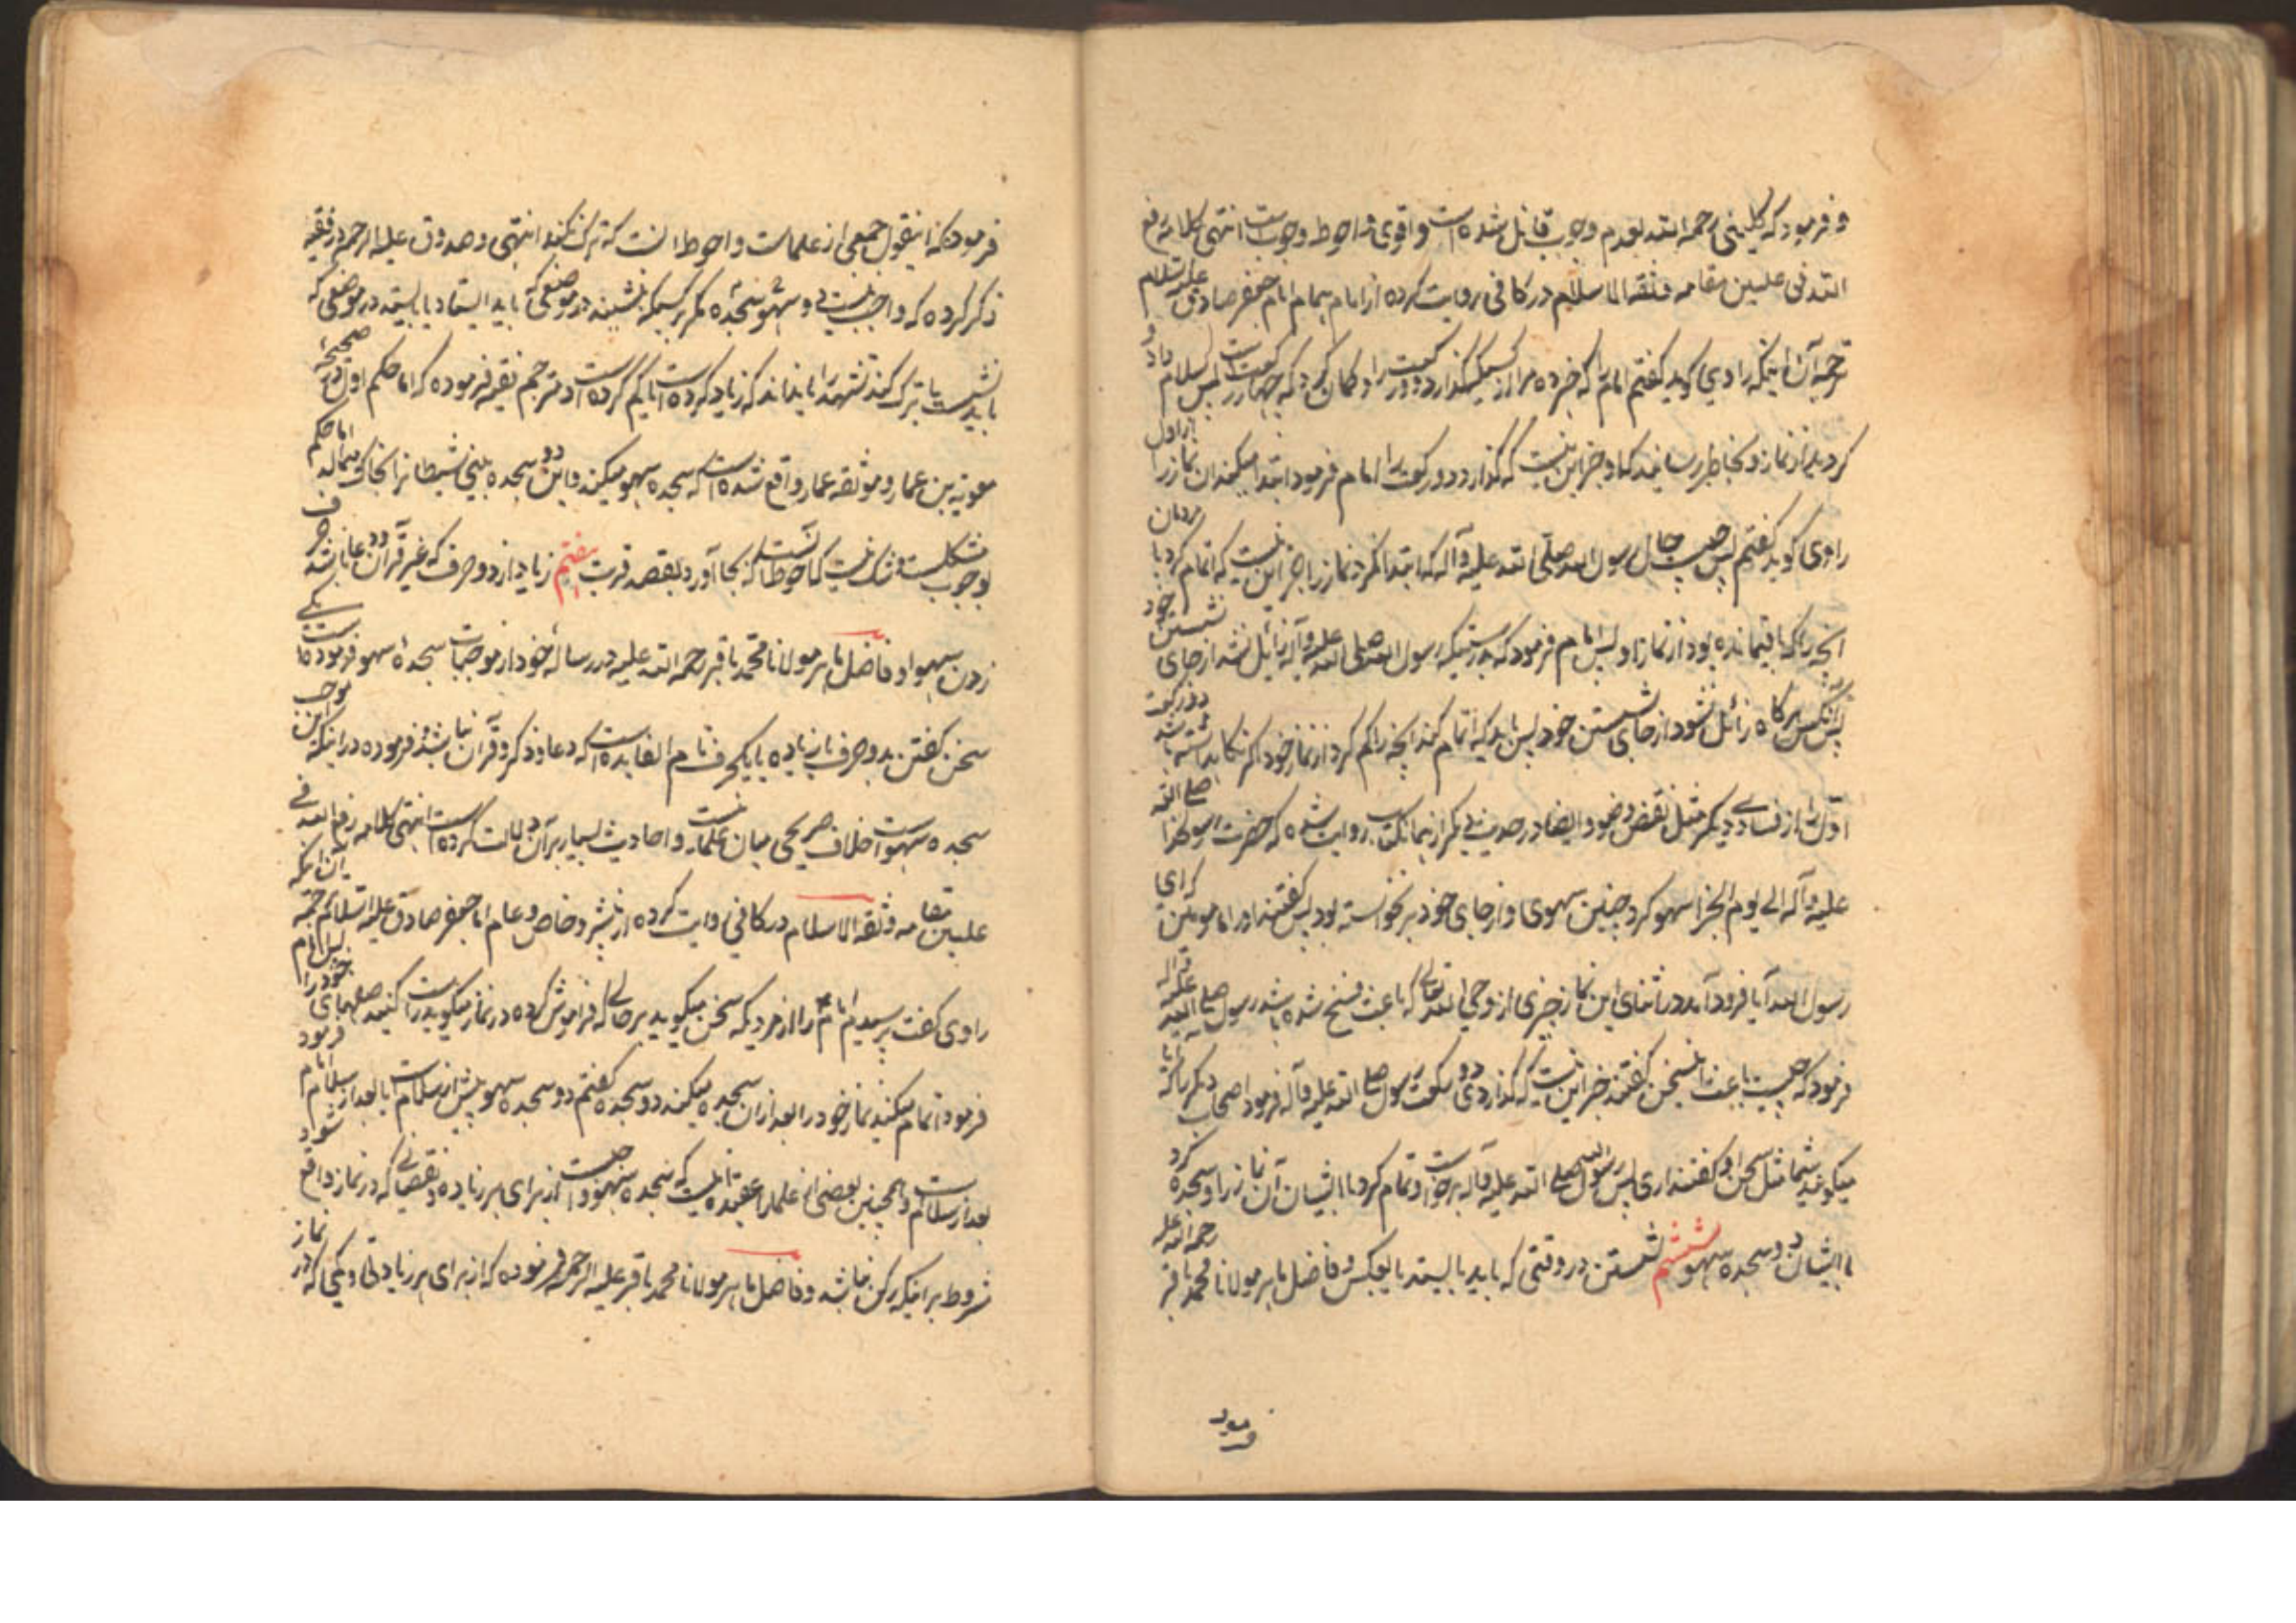 و فرمود که کلینی رحمه الله بعدم وجوب قائل شده است و اقوی و احوط وجوبست انتهی کلامه رفع
الله فی علیین مقامه و ثقه الاسلام در کافی روایت کرده از امام همام امام جعفر صادق علیه السلام
ترجمه آن اینکه راوی گوید گفتم امام را که خبر ده مرا از کسیکه گذارد دو رکعت را و گمان کرد که چهار رکعت است پس سلام داد و
کرد بعد از نماز و بخاطر رسانید که او جز این نیست که گذارد دو رکعت را امام فرمود ابتدا میکند آن نماز را از اول
راوی گوید گفتم پس چیست حال رسول الله صلی الله علیه و آله که ابتدا نکرد نماز را جز این نیست که اتمام کرد با مردمان
آنچه را که باقیمانده بود از نماز او پس امام فرمود که بدرستیکه رسول الله صلی الله علیه و آله زائل نشد از جای نشستن خود
پس آنکس هرگاه زائل نشود از جای نشستن خود پس باید که اتمام کند آنچه را کم کرد از نماز خود اگر نگاه داشته باشد دو رکعت
اول را از فسادی دیگر مثل نقض وضو و ایضا در حدیث دیگر از همان کتاب روایت شده که حضرت رسولخدا صلی الله
علیه و آله الی یوم الجزا سهو کرد چنین سهوی و از جای خود برنخواسته بود پس گفتند او را مامومین که ای
رسول الله آیا فرود آمد در اثنای این نماز چیزی از وحی الله تعالی که باعث نسخ شده باشد رسول صلی الله علیه و آله
فرمود که چیست باعث این سخن گفتند جز این نیست که گذاردی دو رکعت رسول صلی الله علیه و آله فرمود اصحاب دیگر را که آیا
میگوئید شما مثل سخن او گفتند آری پس رسول الله صلی الله علیه و آله برخواست و تمام کرد با ایشان آن نماز را و سجده کرد
با ایشان دو سجده سهو ششم نشستن در وقتی که باید بایستد یا بعکس و فاضل ماهر مولانا محمد باقر رحمه الله علیه
فرمود
فرمود که اینقول جمعی از علماست و احوط آنست که ترک نکند انتهی و صدوق علیه الرحمه در فقیه
ذکر کرده که واجب نیست دو سجده سهو مگر بر کسیکه بنشیند در موضعی که باید ایستاد یا بایستد در موضعی که
باید نشست یا ترک کند تشهد را یا نداند که زیاد کرده است یا کم کرده است و مترجم فقیه فرموده که اما حکم اول در صحیحه
معویة بن عمار و موثقه عمار واقع شده است که سجده سهو میکند و این دو سجده بینی شیطانرا بخاک میمالد اما حکم
بوجوب مشکلست و شک نیست که احوط آنست که بجا آورد بقصد قربت هفتم زیاد از دو حرف که غیر قرآن و دعا باشد حرف
زدن بسهو و فاضل ماهر مولانا محمد باقر رحمه الله علیه در رساله خود از موجبات سجده سهو فرموده است یکی
سخن گفتن بدو حرف یا زیاده یا یکحرف تام الفایده است که دعا و ذکر و قرآن نباشد و فرموده در اینکه این موجب
سجده سهو است خلاف صریحی میان علما نیست و احادیث بسیار بر آن دلالت کرده است انتهی کلامه رفع الله فی
علیین مقامه و ثقه الاسلام در کافی روایت کرده از رهبر خاص و عام امام جعفر صادق علیه السلام ترجمه آن اینکه
راوی گفت پرسیدم امام را از مردیکه سخن میگوید بر حالی که فراموش کرده در نماز میگوید راست کنید صفهای خود را پس امام
فرمود اتمام میکند نماز خود را بعد از آن سجده میکند دو سجده گفتم دو سجده سهو پیش از سلامست یا بعد از سلام امام فرمود
بعد از سلامست و همچنین بعضی از علما را عقیده اینست که سجده سهو واجبست از برای هر زیاده و نقصانی که در نماز واقع شود
مشروط بر اینکه رکن نباشد و فاضل ماهر مولانا محمد باقر علیه الرحمه فرموده که از برای هر زیادتی و کمی که در نماز